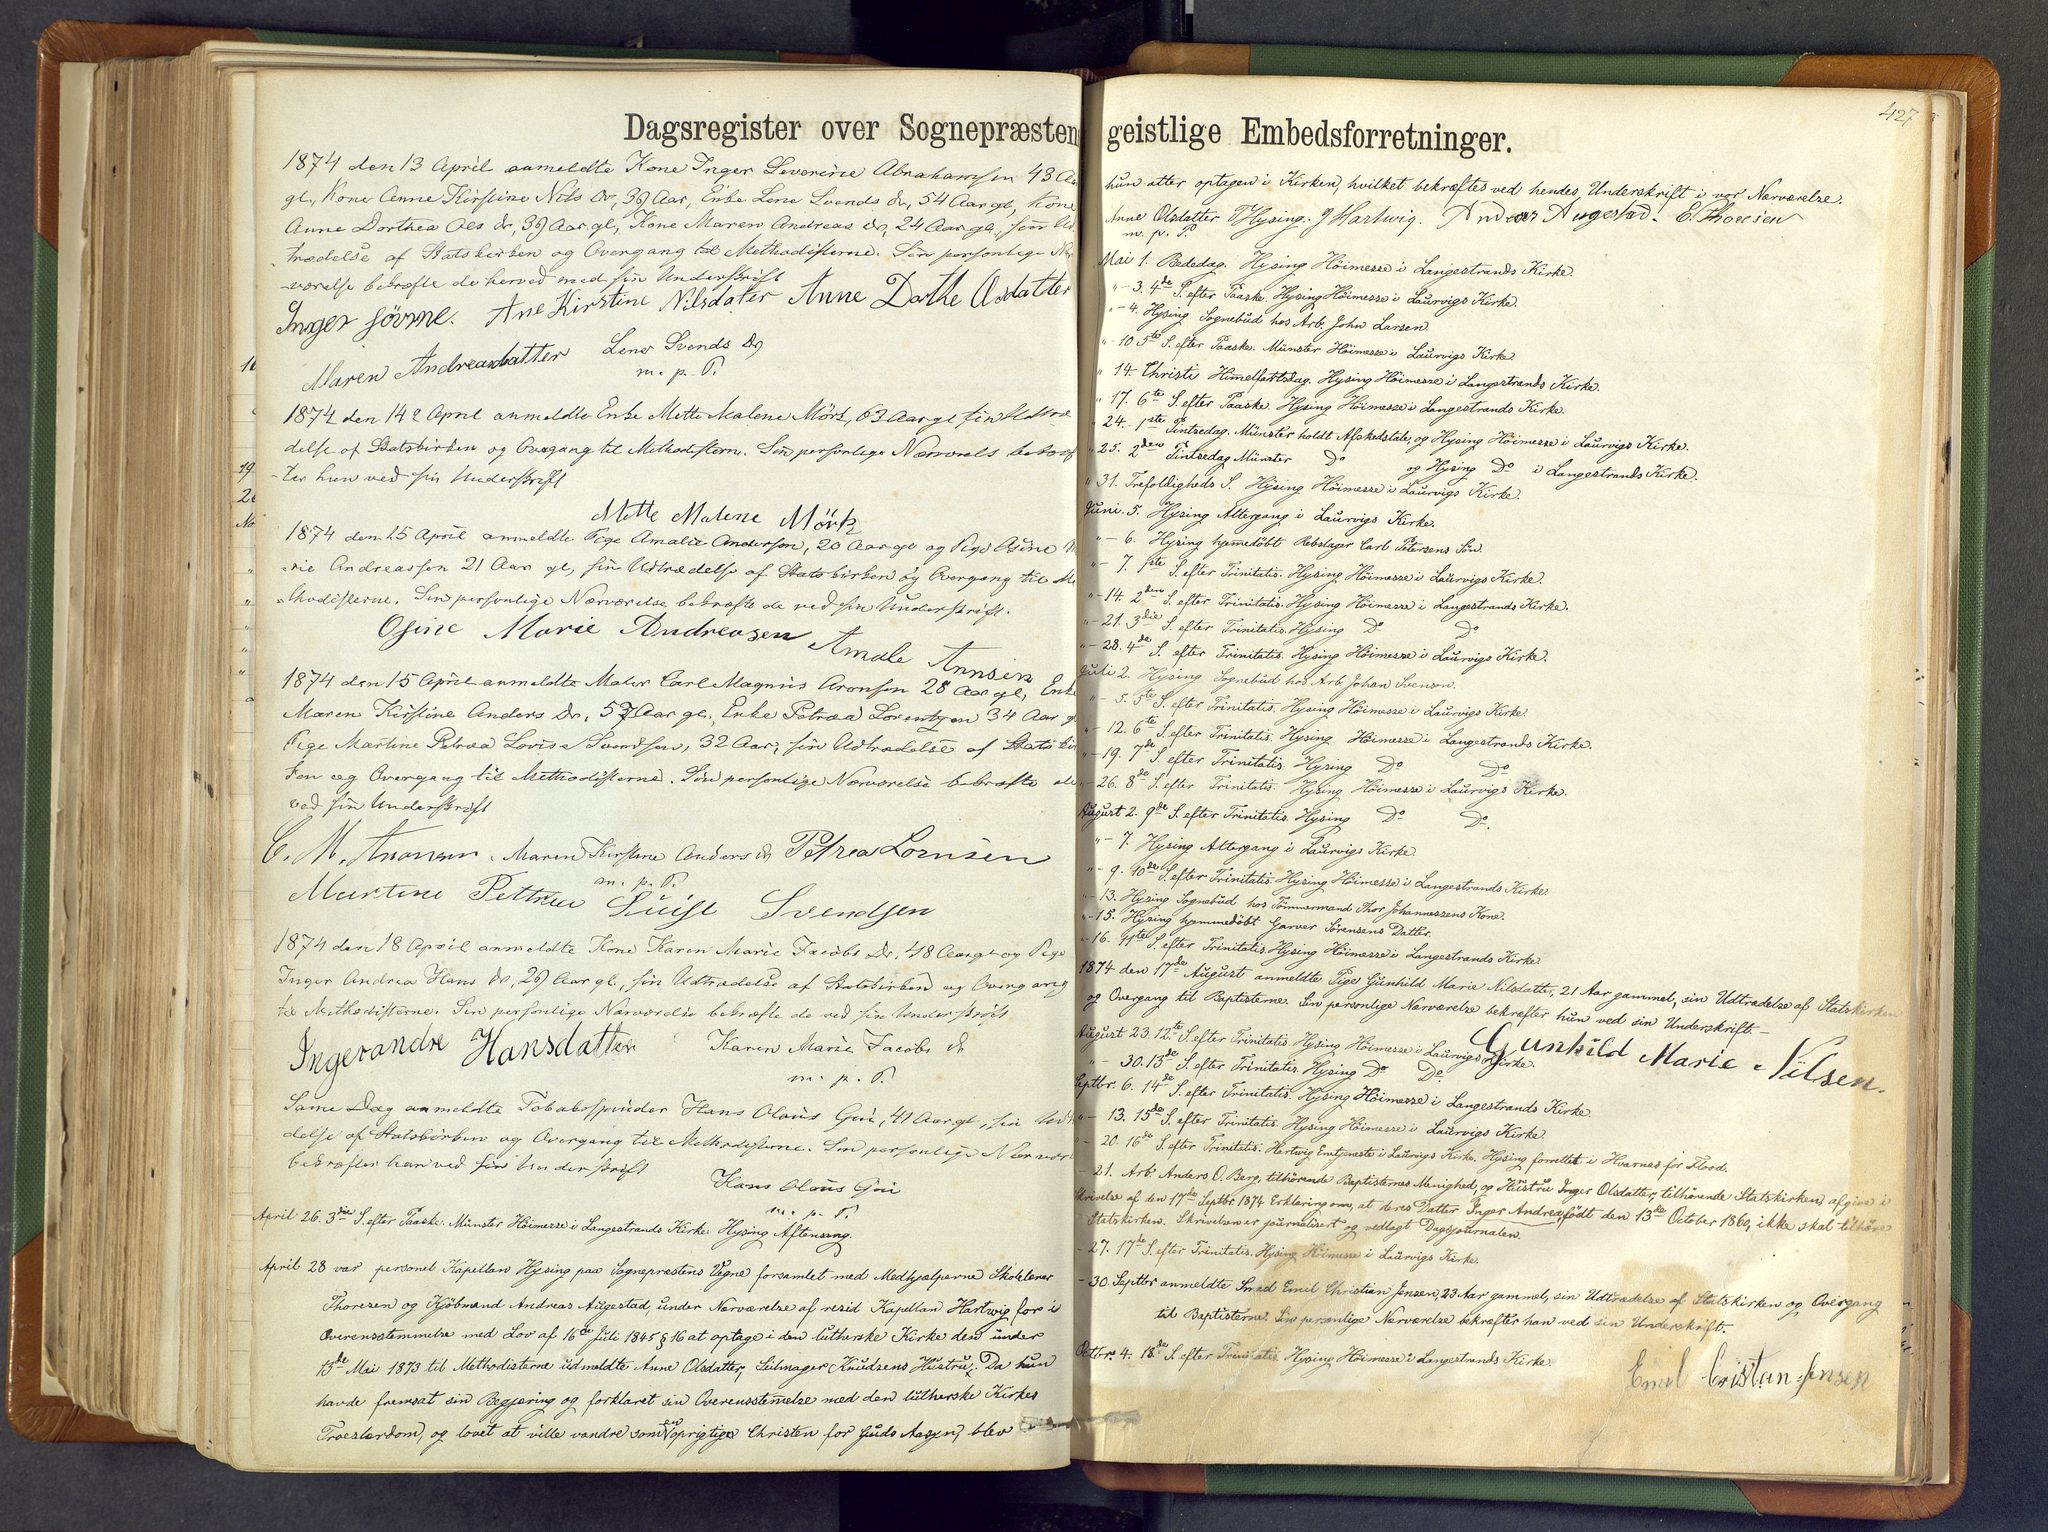 Dagsregister over Sognepræsten
1874 den 13 April anmeldte Kone Inger Severine Abrahamsen 43 Aa
gl., Kone Anne Kirstine Nils Dr, 39 Aar, Enke Lene Svends Dr, 54 Aar gl, Kone
Anne Dorthea Ols Dr, 39 Aar gl, Kone Maren Andreas Dr, 24 Aar gl., sin Ud
trædelse af Statskirken og Overgang til Methodisterne. Sin personlige Næ
værelse bekræfte de herved med sin Underskrift
Inger Ane Kirstine Nilsdater Anne Dothe Osdatter
Maren Andreasdatter Lene Svends Dr
m. p. P.
1874 den 14de April anmeldte Enke Mette Malene Mörk, 63 Aar gl sin Udtræ
delse af Statskirken og Overgang til Methodisterne. Sin personlige Nærværelse bekræf
ter hun ved sin Underskrift
Mette Malene Mörk
1874 den 15 April anmeldte Pige Amalie Andersen, 20 Aar gl og Pige Osine Ma
rie Andreassen 21 Aar gl, sin Udtrædelse af Statskirken og Overgang til Me
thodisterne. Sin personlige Nærværelse bekræfte de ved sin Underskrift.
Osine Marie Andreasen Amale Annsen
1874 den 15 April anmeldte Maler Carl Magnus Aronsen 28 Aar gl, Enke
Maren Kirstine Anders Dr, 57 Aar gl., Enke Petrea Lorentzen 34 Aar gl
Pige Martine Petrea Lovise Svendsen, 32 Aar, sin Udtrædelse af Statskir
ken og Overgang til Methodisterne. Sin personlige Nærværelse bekræfte de
ved sin Underskrift
C. M. Aronsen. Maren Kirstine Anders Dr Petrea Lornsen
m. p. P.
Martine Pettrea Luise Svendsen
1874 den 18 April anmeldte Kone Karen Marie Jacobs Dr, 48 Aar gl og Pige
Inger Andrea Hans Dr, 29 Aar gl., sin Udtrædelse af Statskirken og Overgang
til Methodisterne. Sin personlige Nærværelse bekræfte de ved sin Underskrift
Ingerandre Hansdatter Karen Marie Jacobs Dr
m. p. P.
Same Dag anmeldte Tobaksspinder Hans Olaus Gui, 41 Aar gl, sin Udtræ
delse af Statskirken og Overgang til Methodisterne. Sin personlige Nærvær
bekræfter han ved sin Underskrift
Hans Olaus Gui
m. p. P.
April 26. 3die S. efter Paaske. Münster Höimesse i Langestrands Kirke. Hysing Aftensang.
April 28 var personel Kapellan Hysing paa Sognepræstens Vegne forsamlet med Medhjælperne Skolelærer
Thoresen og Kjöbmand Andreas Augestad, under Nærværelse af resid Kapellan Hartwig for i
Overensstemmelse med Lov af 16de Juli 1845 § 16 at optage i den lutherske Kirke den under
15de Mai 1873 til Methodisterne udmeldte Anne Olsdatter, Seilmager Knudsens Hustru. Da hun
havde fremsat sin Begjæring og forklaret sin Overensstemmelse med den lutherske Kirkes
Troeslærdom, og lovet at ville vandre som en oprigtig Christen for Guds Aasyn, blev
geistlige Embedsforretninger.
427
hun atter optagen i Kirken, hvilket bekræftes ved hendes Underskrift i vor Nærværelse.
Anne Olsdatter THysing. J Hartwig. Andreas Augestad. C. Thoresen
m. p. P.
Mai 1. Bededag. Hysing Höimesse i Langestrands Kirke.
" - 3. 4de S. efter Paaske. Hysing Höimesse i Laurvigs Kirke.
" - 4. Hysing Sognebud hos Arb. John Larsen.
" 10 5te S. efter Paaske. Münster Höimesse i Laurvigs Kirke.
" 14. Christi Himmelfartsdag. Hysing Höimesse i Langestrands Kirke.
" 17. 6te S. efter Paaske. Hysing Höimesse i Langestrands Kirke.
" 24. 1ste Pintsedag. Münster holdt Afskedstale, og Hysing Höimesse i Laurvigs Kirke.
" 25. 2den Pintsedag Münster Do og Hysing Do i Langestrands Kirke.
" 31. Trefoldigheds S. Hysing Höimesse i Laurvigs Kirke.
Juni. 5. Hysing Altergang i Laurvigs Kirke.
" - 6. Hysing hjemmedöbt Rebslager Carl Petersens Sön.
" - 7. 1ste S. efter Trinitatis. Hysing Höimesse i Laurvigs Kirke.
" - 14. 2den S. efter Trinitatis. Hysing Höimesse i Langestrands Kirke.
" - 21. 3die S. efter Trinitatis. Hysing Do Do
" - 28. 4de S. efter Trinitatis. Hysing Höimesse i Laurvigs Kirke.
Juli 2. Hysing Sognebud hos Arb. Johan Svensen.
" - 5. 5te S. efter Trinitatis. Hysing Höimesse i Laurvigs Kirke.
" - 12. 6te S. efter Trinitatis. Hysing Höimesse i Langestrands Kirke.
" - 19. 7de S. efter Trinitatis. Hysing Do Do
" - 26. 8de S. efter Trinitatis. Hysing Höimesse i Laurvigs Kirke.
August 2. 9de S. efter Trinitatis. Hysing Do Do.
" - 7. Hysing Altergang i Laurvigs Kirke.
" - 9. 10de S. efter Trinitatis. Hysing Höimesse i Langestrands Kirke.
" - 13. Hysing Sognebud hos Tömmermand Thor Johannessens Kone.
" - 15. Hysing hjemmedöbt Garver Sörensens Datter.
" - 16. 11te S. efter Trinitatis. Hysing Höimesse i Langestrands Kirke
1874 den 17de August anmeldte Pige Gunhild Marie Nilsdatter, 21 Aar gammel, sin Udtrædelse af Statskirken
og Overgang til Baptisterne. Sin personlige Nærværelse bekræfter hun ved sin Underskrift. -
August 23. 12te S. efter Trinitatis. Hysing Höimesse i Laurvigs Kirke. Gunhild Marie Nilsen.
" - 30. 13de S. efter Trinitatis. Hysing Do Do.
Septbr. 6. 14de S. efter Trinitatis. Hysing Höimesse i Langestrands Kirke.
" - 13. 15de S. efter Trinitatis. Hysing Höimesse i Laurvigs Kirke.
- 20. 16de S. efter Trinitatis. Hartwig Emtjeneste i Laurvigs Kirke. Hysing forrettet i Hvarnes for Flood.
- 21. Arb. Anders O. Berg, tilhörende Baptisternes Menighed, og Hustru Inger Olsdatter, tilhörende Statskirken, afgive i
Skrivelse af den 17de Septbr 1874 Erklæring om, at deres Datter Inger Andrea, födt den 13de October 1860, ikke skal tilhöre
Statskirken. Skrivelsen er journaliseret og vedlagt Dagsjournalen.
- 27. 17de S. efter Trinitatis. Hysing Höimesse i Laurvigs Kirke.
- 30. Septbr anmeldte Smed Emil Christian Jensen, 23 Aar gammel, sin Udtrædelse af Statskirken og Overgang
til Baptisterne. Sin personlige Nærværelse bekræfter han ved sin Underskrift.
Octbr. 4. 18de S. efter Trinitatis. Hysing Höimesse i Langestrands Kirke.
Emil Cristan Jensen